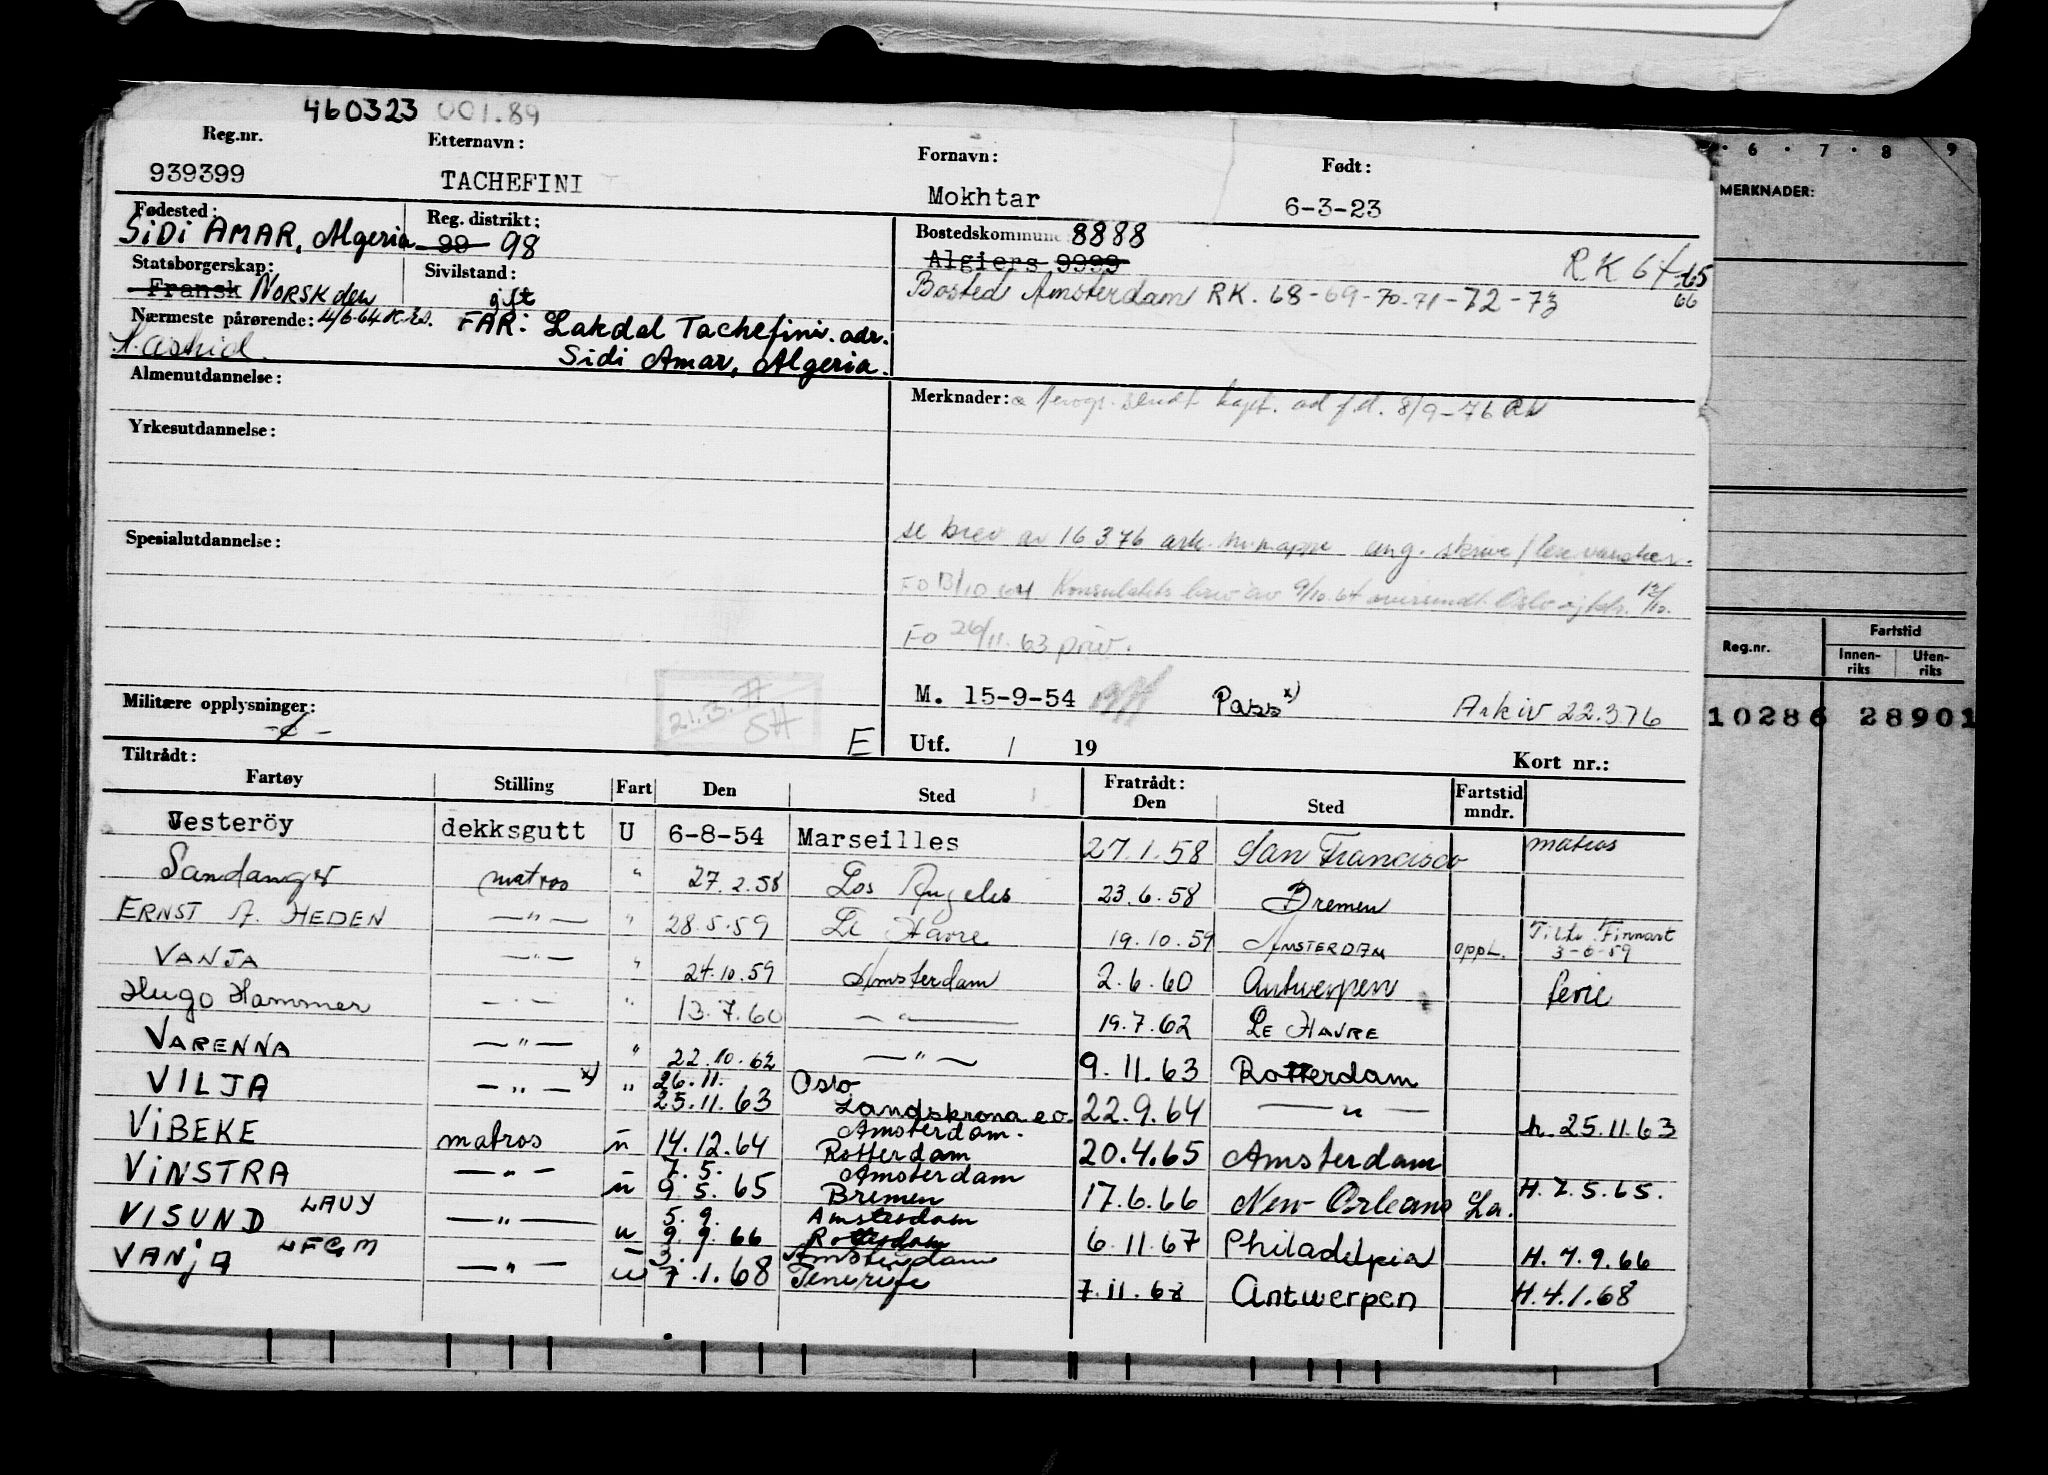 460323 001.89
Reg.nr. Etternavn: Fornavn: Født:
939399 TACHEFINI Mokhtar 6-3-23
Fødested: Reg. distrikt: Bostedskommune: 8888
SiDi AMAR, Algeria 99 98 Algiers 9999 RK 64-65
66
Statsborgerskap: Sivilstand: Bosted Amsterdam RK. 68-69-70-71-72-73
Fransk NORSK den gift
Nærmeste pårørende: 4/6-64 FAR: Lakdal Tachefini. adr.
Sidi Amar, Algeria.
Almenutdannelse: Merknader: sendt 8/9-76
Yrkesutdannelse:
Spesialutdannelse: se brev av 16 3 76 ang. skrive/lese
FO 13/10 64 Konsulatets brev av 9/10.64 oversendt Oslo 12/10.
FO 26/11.63 priv.
Militære opplysninger: M. 15-9-54 Pass x) Arkiv 22.376
E Utf. / 19 Kort nr.:
Tiltrådt: Fratrådt:
Fartøy Stilling Fart Den Sted Den Sted Fartstid mndr.
Vesteröy dekksgutt U 6-8-54 Marseilles 27.1.58 San Francisco matros
Sandanger matros " 27.2.58 Los Angeles 23.6.58 Bremen
ERNST A. HEDEN — " — " 28.5.59 Le Havre 19.10.59 AMSTERDAM oppl. Tiltr. Finnart 3-6-59
VANJA — " — " 24.10.59 Amsterdam 2.6.60 Antwerpen ferie
Hugo Hammer — " — " 13.7.60 — " — 19.7.62 LE HAVRE
VARENNA — " — " 22.10.62 — " — 9.11.63 Rotterdam
VILJA — " — x) " 26.11. 25.11.63 Oslo Landskrona e.o. 22.9.64 — " — h. 25.11.63
VIBEKE matros u 14.12.64 Amsterdam. Rotterdam 20.4.65 Amsterdam
VINSTRA — " — u 7.5. 9.5.65 Amsterdam Bremen 17.6.66 New Orleans La. H. 7.5.65.
VISUND LAUY — " — u 5.9. 9.9.66 Amsterdam Rotterdam 6.11.67 Philadelpia H. 7.9.66
VANJA LFGM — " — u 3. 7.1.68 Amsterdam Tenerife 7.11.68 Antwerpen H. 4.1.68
6 . 7 . 8 9
MERKNADER:
Reg.nr. Fartstid
Innen-riks Uten-riks
10286 28901